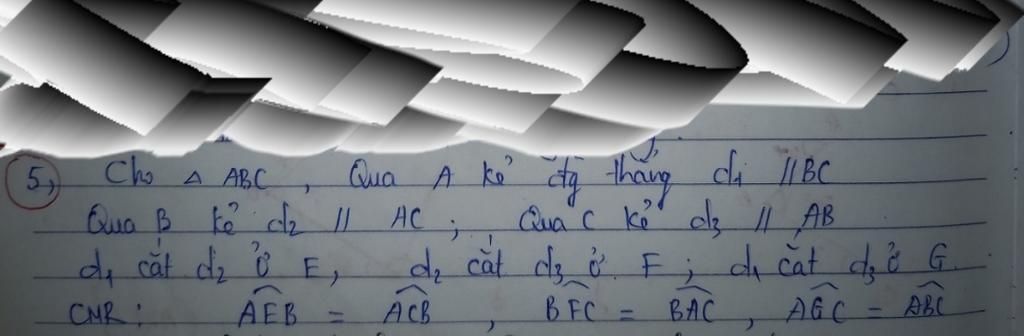 5, Cho △ ABC , Qua A kẻ đtg thẳng d1 // BC
Qua B kẻ d2 // AC ; Qua C kẻ d3 // AB
d1 cắt d2 ở E, d2 cắt d3 ở F ; d1 cắt d3 ở G.
CMR : \widehat{AEB} = \widehat{ACB} , \widehat{BFC} = \widehat{BAC} , \widehat{AGC} = \widehat{ABC}